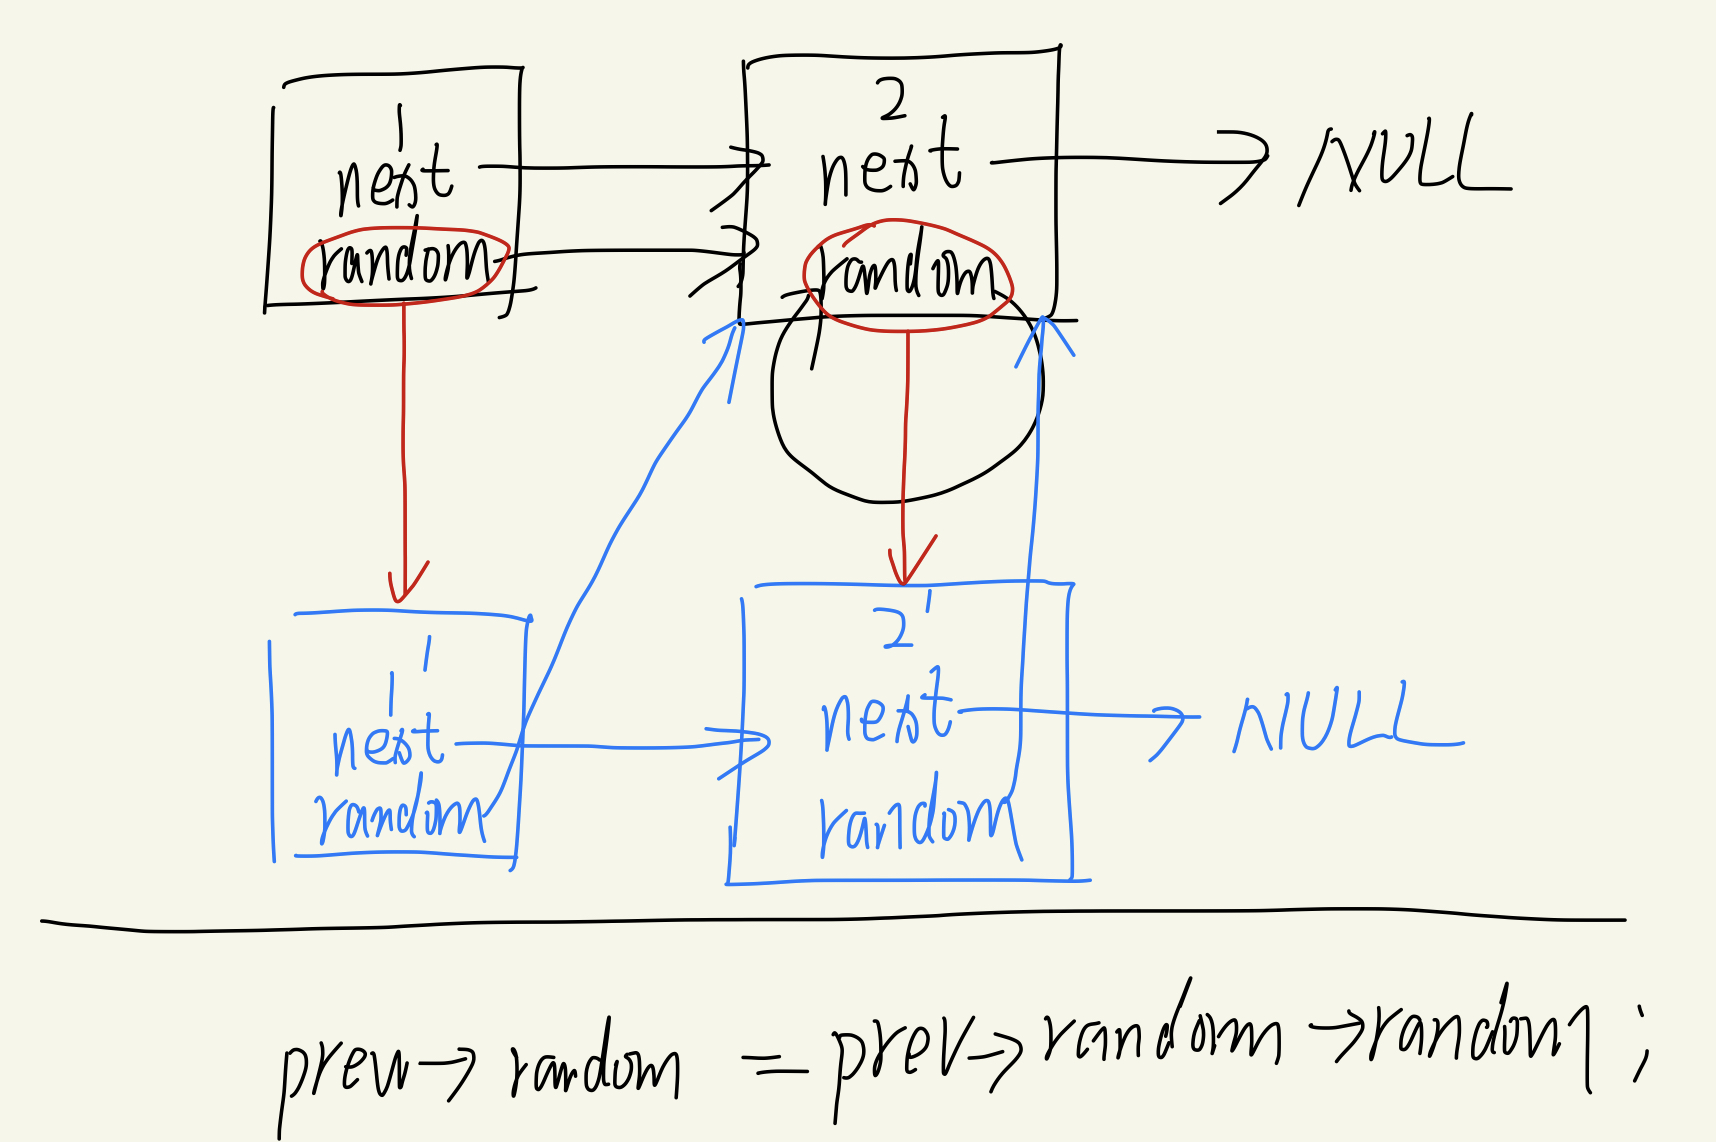 1
next
random
2
next
random
NULL
1'
next
random
2'
next
random
NULL
prev→random = prev→random→random;